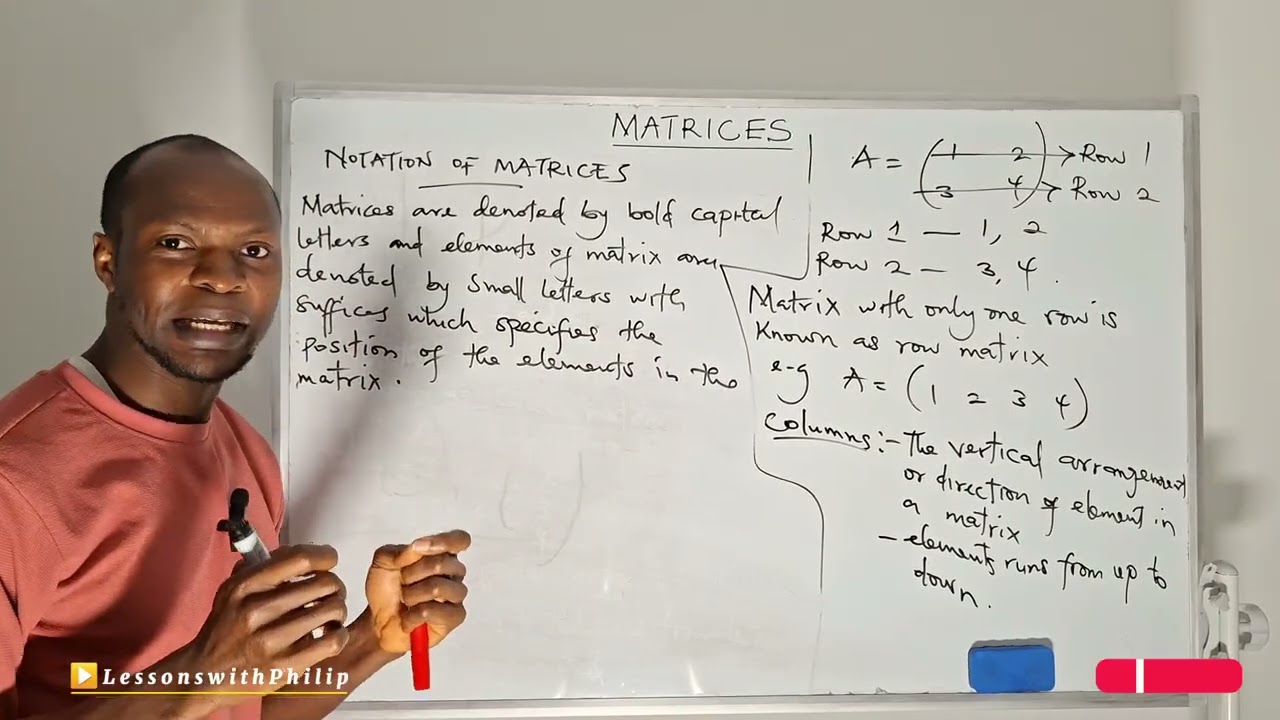 MATRICES
NOTATION OF MATRICES
Matrices are denoted by bold capital
letters and elements of matrix are
denoted by small letters with
suffices which specifies the
position of the elements in the
matrix.
A = (1 2) → Row 1
(3 4) → Row 2
Row 1 — 1, 2
Row 2 — 3, 4.
Matrix with only one row is
known as row matrix
e-g A = (1 2 3 4)
Columns:- The vertical arrangement
or direction of element in
a matrix
- elements runs from up to
down.
LessonswithPhilip